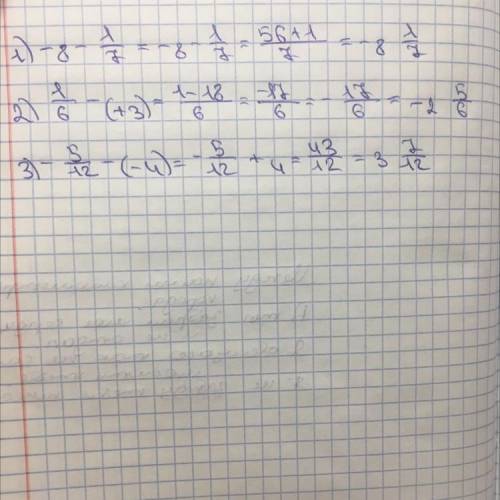 1) -8 - 1/7 = -8 - 1/7 = 56+1/7 = -8 1/7
2) 1/6 - (+3) = 1-18/6 = -17/6 = - 17/6 = -2 5/6
3) - 5/12 - (-4) = - 5/12 + 4 = 43/12 = 3 7/12